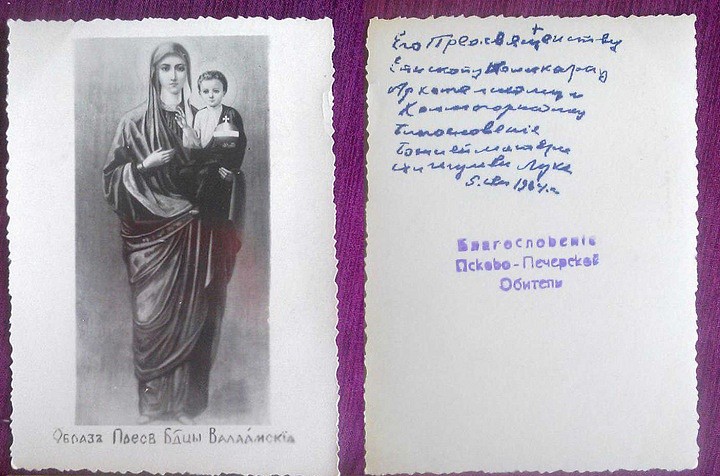 Образъ Пресв Бдцы Валаамскія
Его Преосвященству
Епископу Никандру
Архангельскому и
Холмогорскому
Благословеніе
Божией Матери
Лука
5. 1964 г.
Благословенiе
Псково-Печерской
Обители